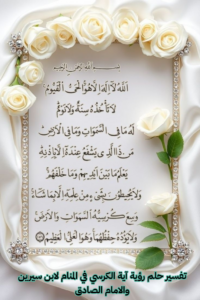 بسم الله الرحمن الرحيم
الله لا إله إلا هو الحي القيوم
لا تأخذه سنة ولا نوم
له ما في السموات وما في الأرض
من ذا الذي يشفع عنده إلا بإذنه
يعلم ما بين أيديهم وما خلفهم
ولا يحيطون بشيء من علمه إلا بما شاء
وسع كرسيه السموات والأرض
ولا يؤده حفظهما وهو العلي العظيم
تفسير حلم رؤية آية الكرسي في المنام لابن سيرين
والامام الصادق